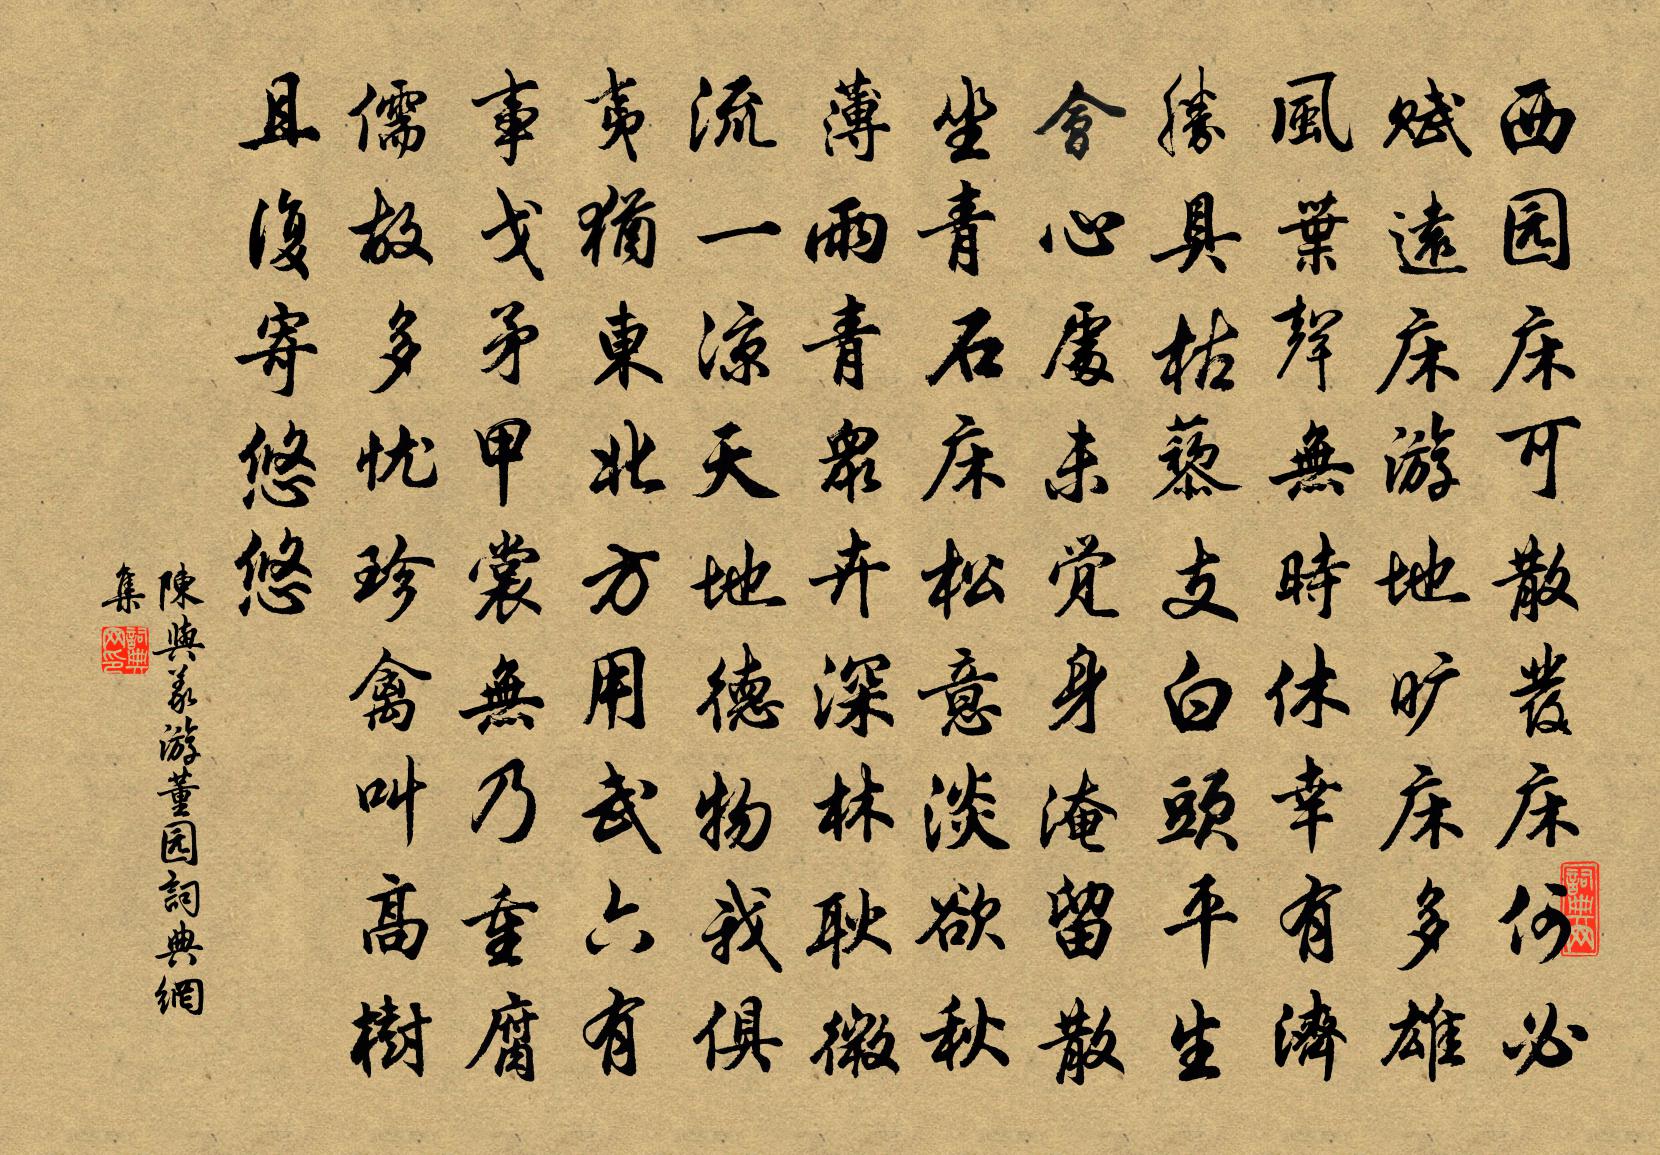 西园床可散發床何必
賦遠床游地旷床多雄
風葉聲無時休幸有濟
勝具枯藜支白頭平生
會心處未觉身淹留散
坐青石床松意淡欲秋
薄雨青眾卉深林耿微
流一凉天地德物我俱
夷猶東北方用武六有
事戈矛甲裳無乃重腐
儒故多忧珍禽叫高樹
且復寄悠悠
陳與義游董园詞典網
集
詞典网
詞典网印